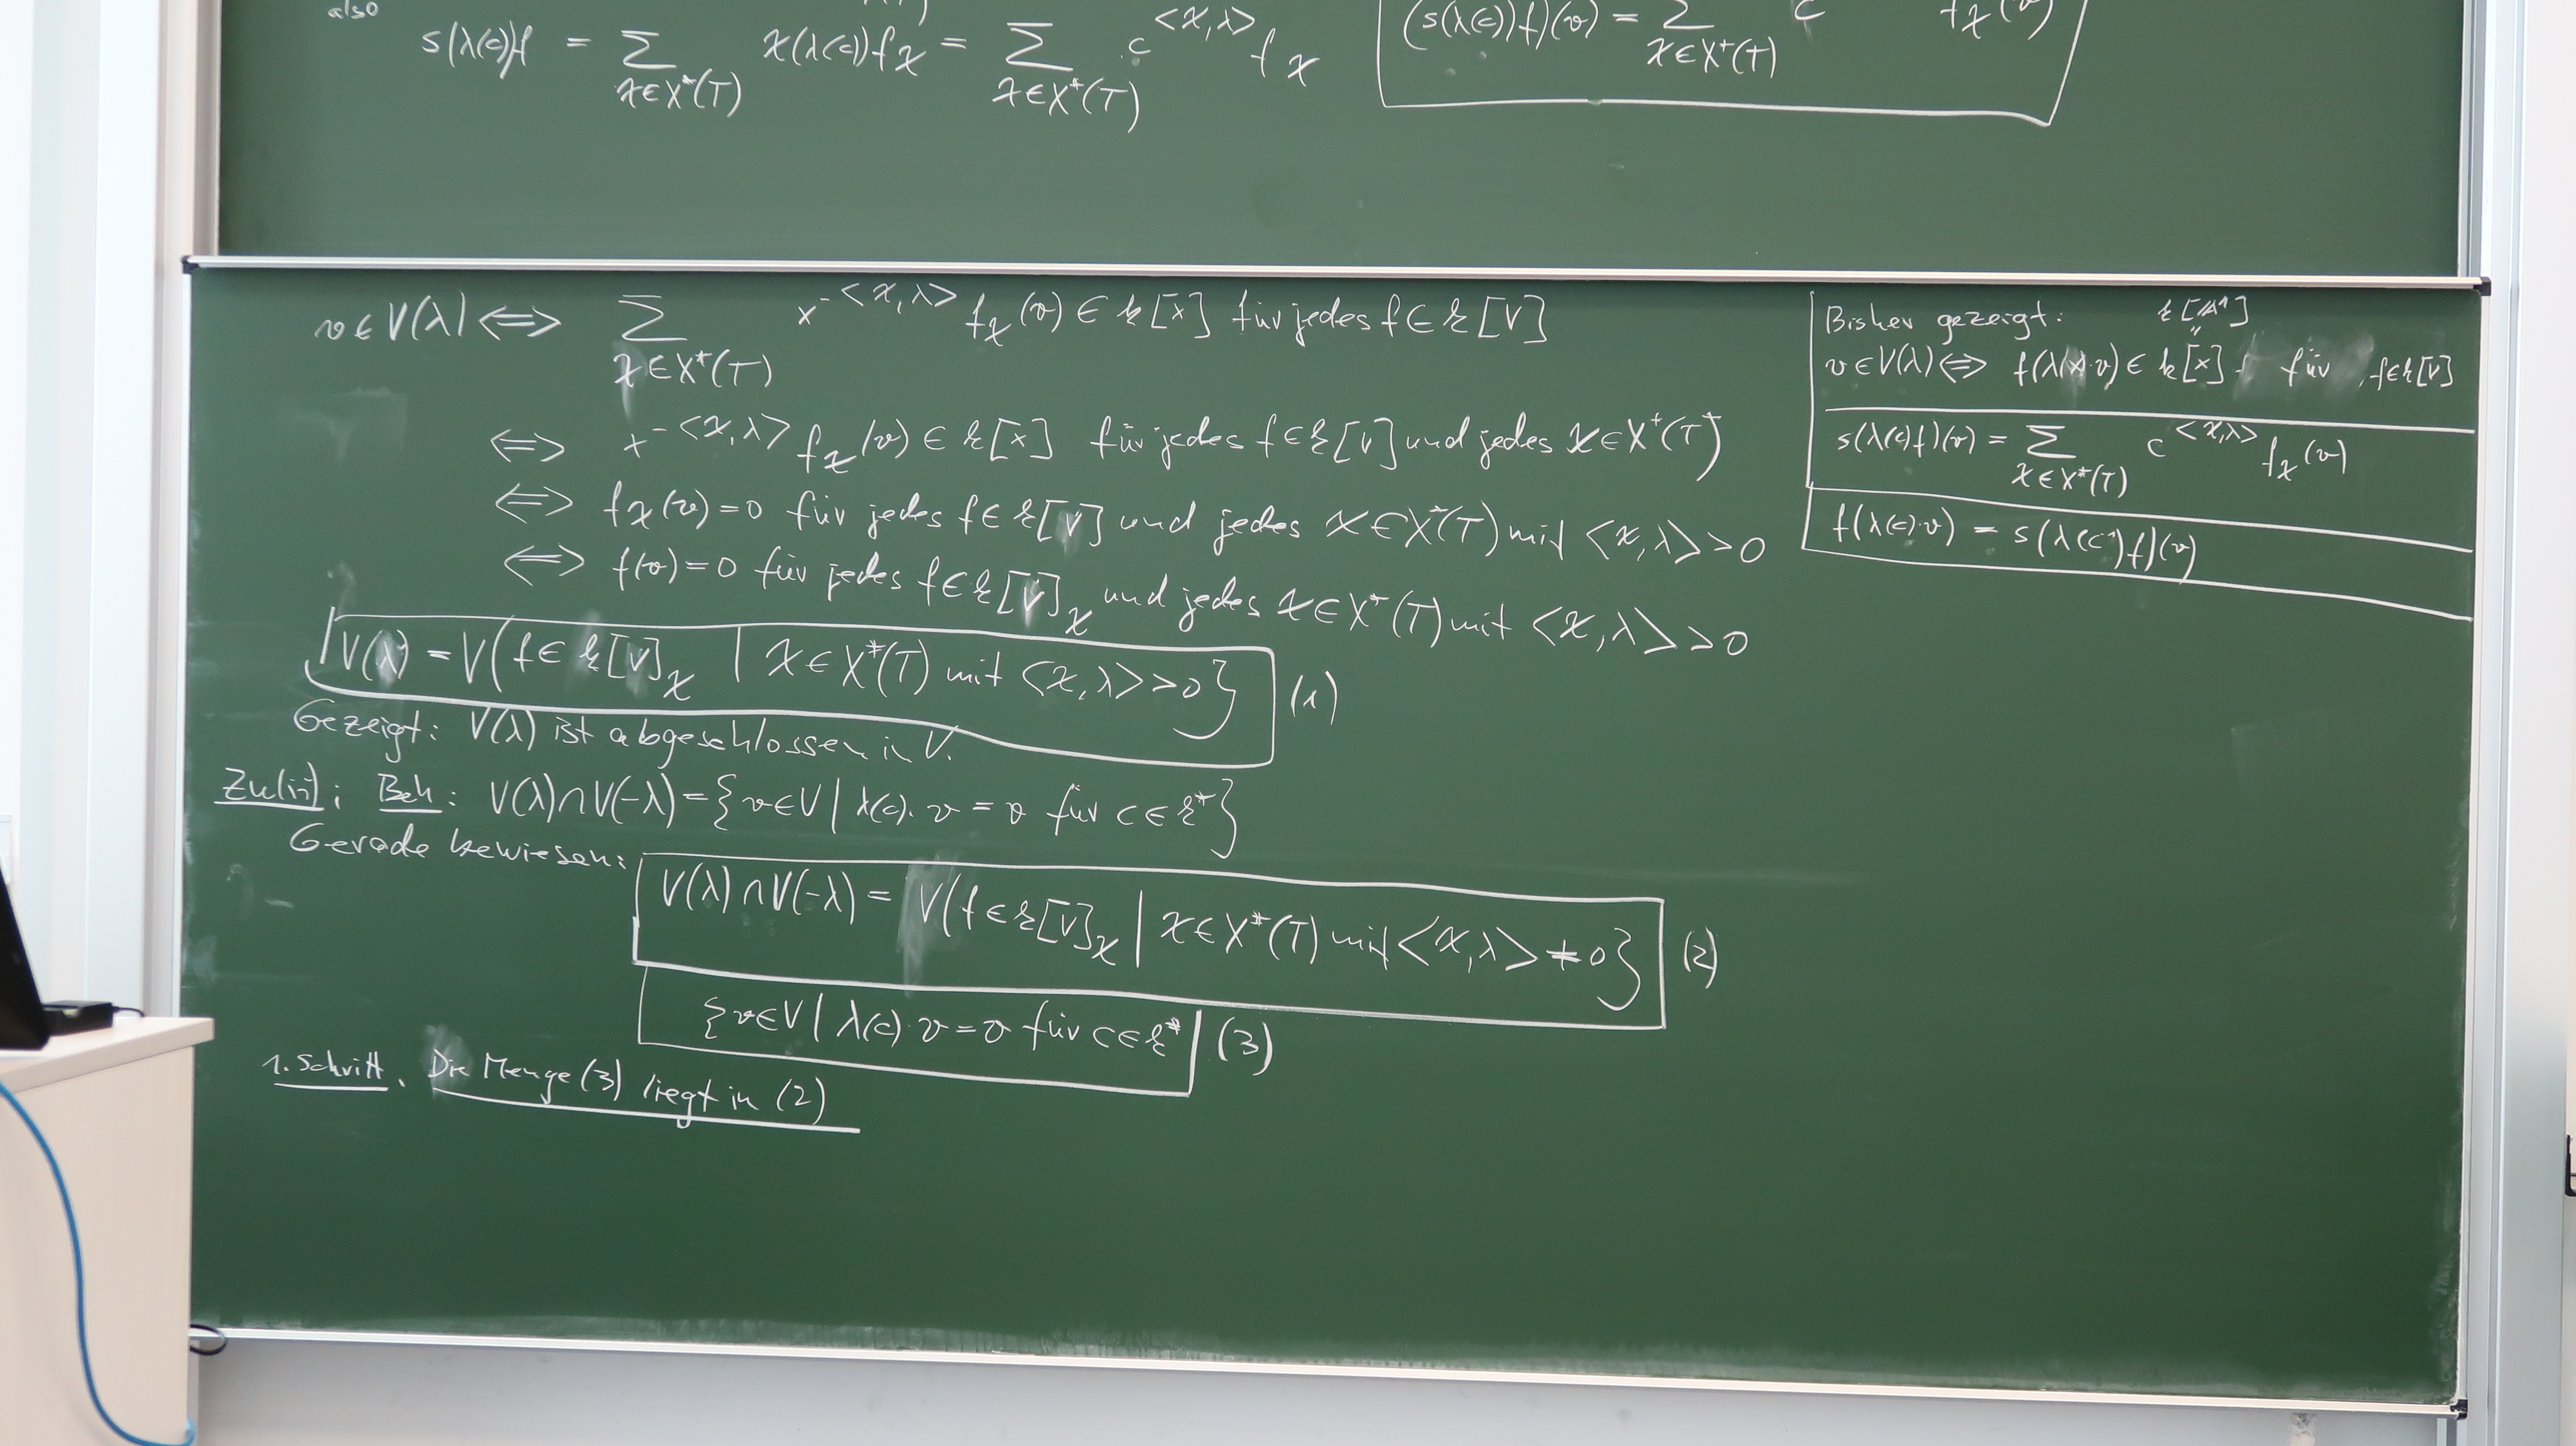 also
s(λ(c))f = ∑_{χ∈X*(T)} χ(λ(c))f_χ = ∑_{χ∈X*(T)} c^{<χ,λ>} f_χ
(s(λ(c))f)(v) = ∑_{χ∈X*(T)} c f_χ(v)
v∈V(λ) ⟺ ∑_{χ∈X*(T)} x^{-<χ,λ>} f_χ(v) ∈ k[x] für jedes f∈k[V]
⟺ x^{-<χ,λ>} f_χ(v) ∈ k[x] für jedes f∈k[V] und jedes χ∈X*(T)
⟺ f_χ(v)=0 für jedes f∈k[V] und jedes χ∈X*(T) mit <χ,λ> >0
⟺ f(v)=0 für jedes f∈k[V]_χ und jedes χ∈X*(T) mit <χ,λ> >0
V(λ) = V(f∈k[V]_χ | χ∈X*(T) mit <χ,λ> >0} (1)
Gezeigt: V(λ) ist abgeschlossen in V.
Zu(ii): Beh: V(λ)∩V(-λ)={v∈V | λ(c)·v = v für c∈k*}
Gerade bewiesen:
V(λ)∩V(-λ) = V(f∈k[V]_χ | χ∈X*(T) mit <χ,λ> ≠0} (2)
{v∈V | λ(c)·v = v für c∈k* (3)
1. Schritt. Die Menge (3) liegt in (2)
Bisher gezeigt: k[𝔸¹]
"
v∈V(λ) ⟺ f(λ(x)·v) ∈ k[x] für f∈k[V]
s(λ(c)f)(v) = ∑_{χ∈X*(T)} c^{<χ,λ>} f_χ(v)
f(λ(c)·v) = s(λ(c⁻¹)f)(v)